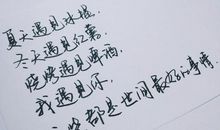 夏天遇见冰棍,
冬天遇见红薯,
晚睡遇见啤酒,
我遇见你,
都是世间最好的事情.